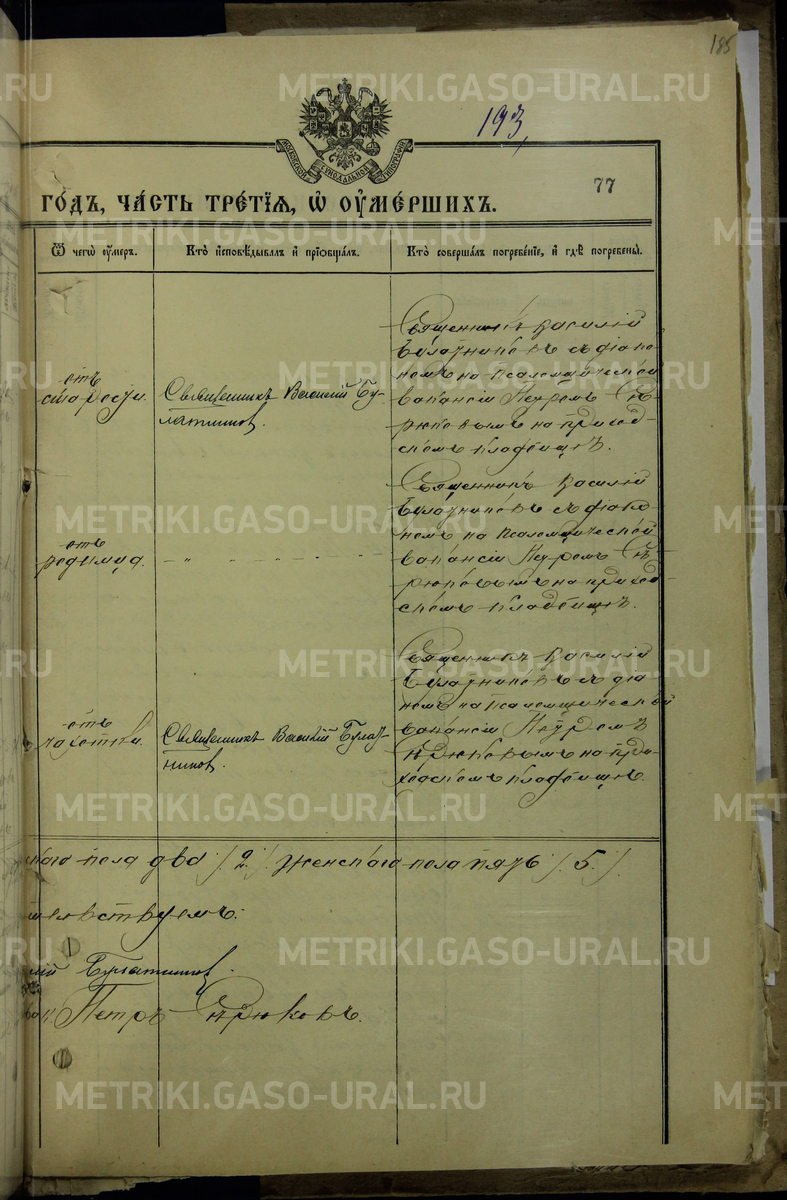 185
193
МОСКОВСКОЙ СѴНОДАЛЬНОЙ ТИПОГРАФІИ
77
ГОДЪ, ЧАСТЬ ТРЕТІЯ, Ѡ ОУМЕРШИХЪ.
Ѿ чегѡ оумеръ.
Кто исповѣдывалъ и пріобщалъ.
Кто совершалъ погребеніе, и гдѣ погребены.
отъ
старости.
Священникъ Василій Бу-
латников.
Священникъ Василій
Булатниковъ съ діако
номъ на псаломщической
вакансіи Петромъ
рюковымъ на приход-
скомъ кладбищѣ.
отъ
родимца.
Священникъ Василій
Булатниковъ съ діако
номъ на псаломщической
вакансіи Петромъ
рюковымъ на приход-
скомъ кладбищѣ.
отъ
чахотки.
Священникъ Василій Булат-
ников.
Священникъ Василій
Булатниковъ съ діа
номъ на псаломщической
вакансіи Петромъ
рюковымъ на при-
ходскомъ кладбищѣ.
пола два /2/. Женскаго пола пять /5/.
тельствуемъ:
лій Булатников.
Петръ
METRIKI.GASO-URAL.RU